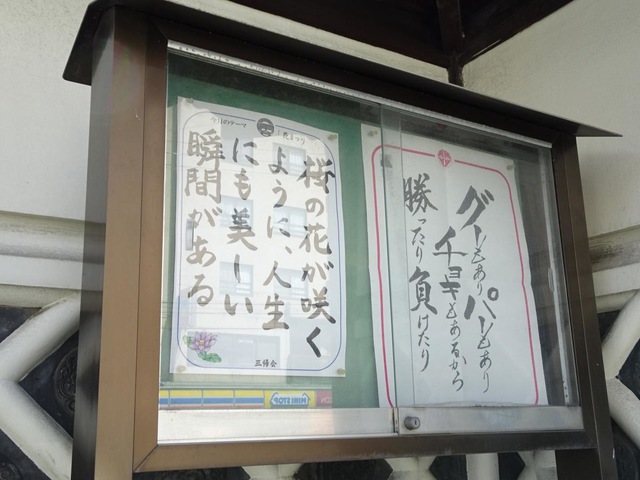 グーもありパーもあり
チョキもあるから
勝ったり負けたり
今月のテーマ
花まつり
桜の花が咲く
ように、人生
にも美しい
瞬間がある
三修会
MINI STOP